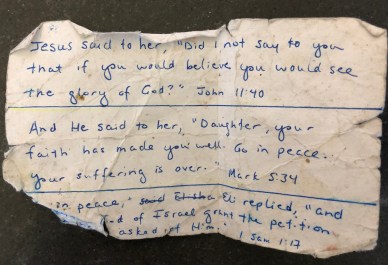 Jesus said to her, "Did I not say to you
that if you would believe you would see
the glory of God?" John 11:40
And He said to her, "Daughter, your
faith has made you well. Go in peace...
your suffering is over." Mark 5:34
in peace," said Elisha Eli replied, "and
God of Israel grant the petition
asked of Him." 1 Sam 1:17